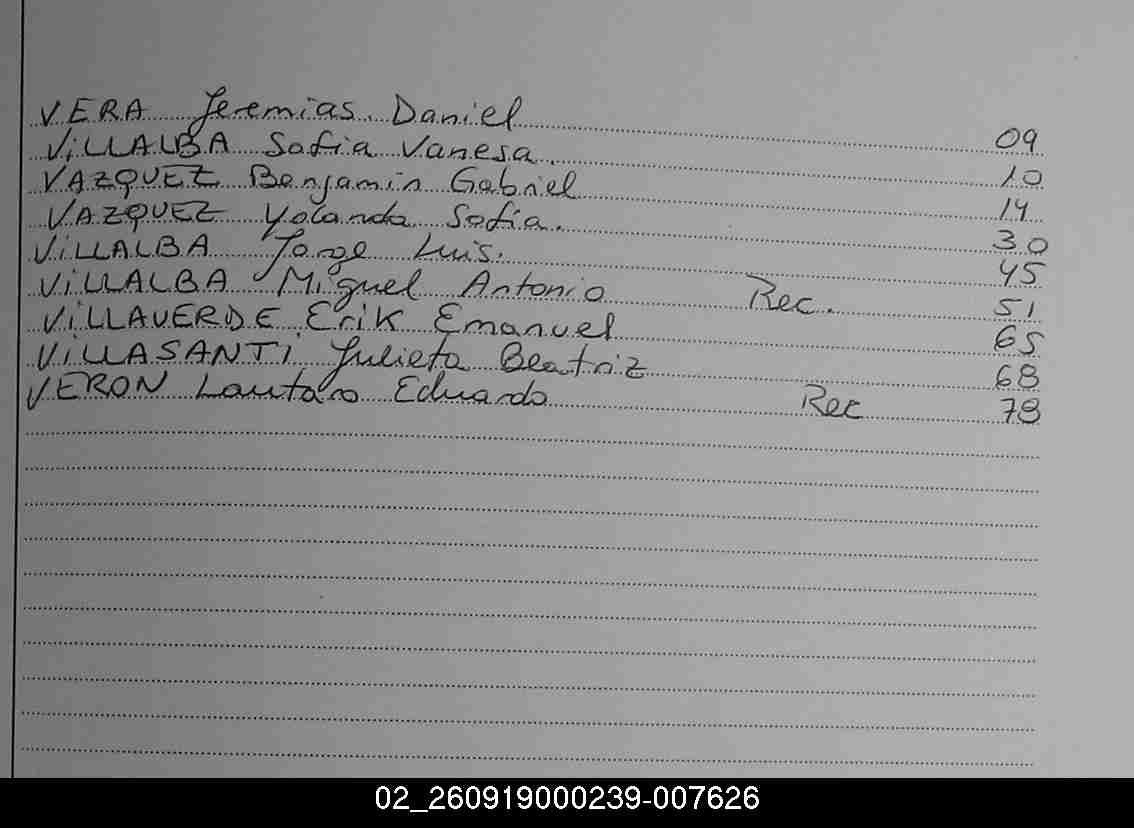 VERA Jeremias Daniel 09
ViLLALBA Sofia Vanesa. 10
VAZQUEZ Benjamin Gabriel 14
VAZQUEZ Yolanda Sofia. 30
ViLLALBA Jorge Luis. 45
ViLLALBA Miguel Antonio Rec. 51
ViLLAVERDE Erik Emanuel 65
ViLLASANTi Julieta Beatriz 68
VERON Lautaro Eduardo Rec 78
02_260919000239-007626